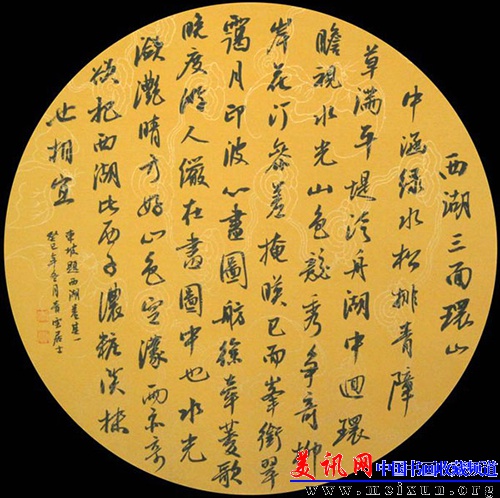 西湖三面環山
中涵绿水松排青障
草满平堤泛舟湖中迴環
瞻視水光山色競秀爭奇柳
岸花汀參差掩映已而峯銜翠
靄月印波心畫圖舫徐牽菱歌
晚度游人儼在畫圖中也水光
潋滟晴方好山色空濛雨亦奇
欲把西湖比西子濃粧淡抹
也相宜
東坡題西湖景其一
癸巳年月雲居士
美讯网 中国书画收藏频道
www.meixun.org